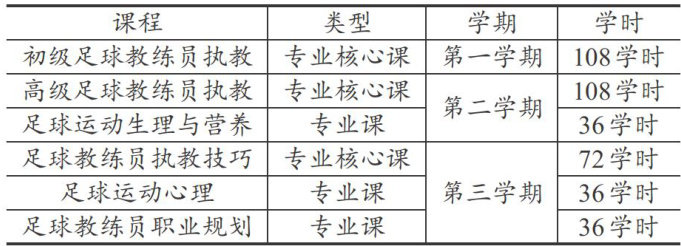 课程 类型 学期 学时
初级足球教练员执教 专业核心课 第一学期 108学时
高级足球教练员执教 专业核心课 第二学期 108学时
足球运动生理与营养 专业课 36学时
足球教练员执教技巧 专业核心课 第三学期 72学时
足球运动心理 专业课 36学时
足球教练员职业规划 专业课 36学时